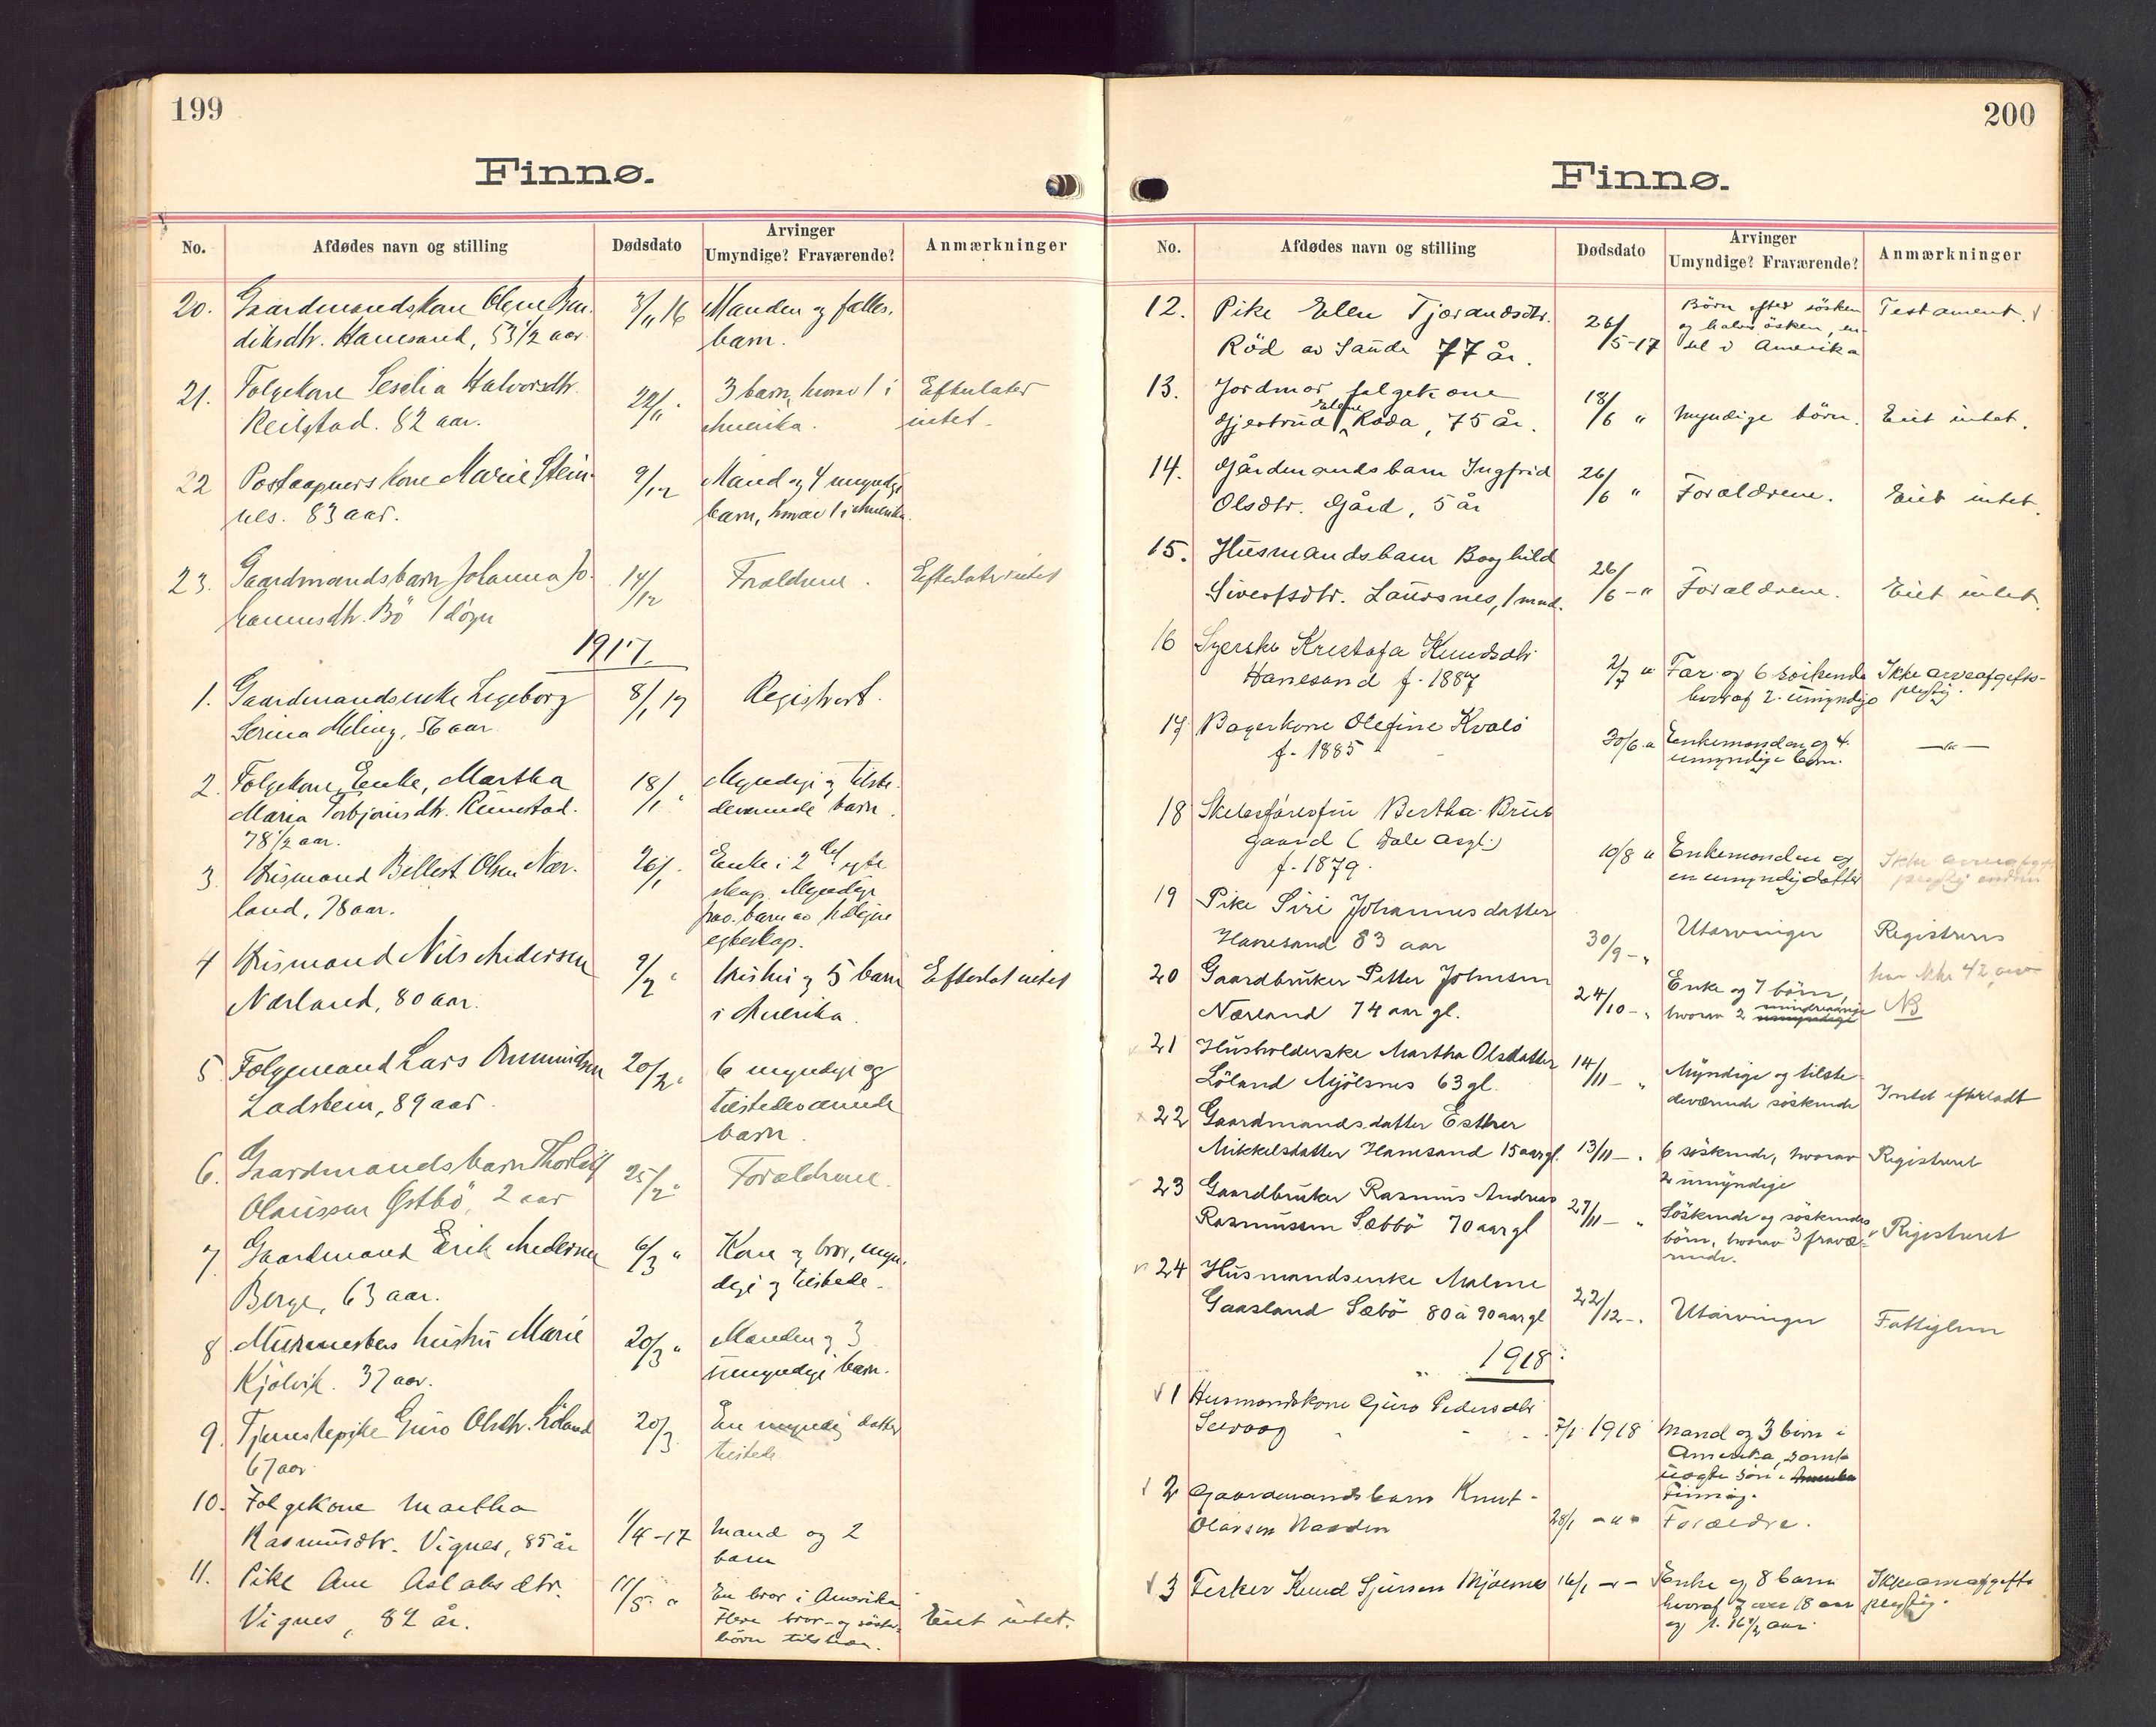 199
Finnø.
No.
Afdødes navn og stilling
Dødsdato
Arvinger
Umyndige? Fraværende?
Anmærkninger
20. Gaardmandskone Olene Ben- 3/11 16 Manden og felles
diksdtr. Hanesand, 53 1/2 aar. barn.
21. Folgekone Seselia Halvorsdtr. 22/11 " 3 barn, hvorav 1 i Efterlater
Reilstad. 82 aar. Amerika. intet.
22 Postaapners kone Marie Stein- 9/12 Mand og 4 myndige
nes. 83 aar. barn, hvorav 1 i Amerika.
23. Gaardmandsbarn Johanna Jo- 14/12 Forældrene. Efterlater intet
hannesdtr. Bö 1 døgn
1917.
1. Gaardmandsenke Ingeborg 8/1 17 Registrert.
Serina Meling, 56 aar.
2. Folgekone, Enke, Martha 18/1 " Myndige og tilste-
Maria Torbjørnsdtr. Rennestad. deværende barn.
78 1/2 aar.
3. Husmand Bellest Olsen Nær- 26/1 " Enke i 2det egte
land, 78 aar. skap. Myndige
frav. barn av tidligere
egteskap.
4 Husmand Nils Andersen 9/2 " Hustru og 5 barn Efterlot intet
Nærland, 80 aar. i Amerika.
5 Folgemand Lars Ommundsen 20/2 " 6 myndige og
Ladstein, 89 aar. tilstedeværende
barn.
6. Gaardmandsbarn Thorleif 25/2 " Forældrene.
Olaussen Østbö, 2 aar
7 Gaardmand Erik Andersen 6/3 " Kone og bror, myn-
Berge, 63 aar. dige og tilstede.
8 Murmesters hustru Marie 20/3 " Manden og 3
Kjölvik. 37 aar. umyndige barn.
9. Tjenestepike Guro Olsdtr. Löland 20/3 En myndig datter
67 aar. tilstede
10. Folgekone Martha
Rasmusdtr. Vignes, 85 år 1/4-17 Mand og 2
barn
11. Pike Ane Aslaksdtr. 11/5 " En bror i Amerika
Vignes, 82 år. Flere bror- og søster- Eiet intet.
börn tilstede.
200
Finnø.
No.
Afdødes navn og stilling
Dødsdato
Arvinger
Umyndige? Fraværende?
Anmærkninger
12. Pike Ellen Tjørandsdtr. 26/5-17 Børn efter sösken Testament.
Röd av Sande 77 år. og halvsösken, en
del i Amerika
13. Jordmor, folgekone
Gjertrud Elene Roda, 75 år. 18/6 " Myndige börn. Eiet intet.
14. Gårdmandsbarn Ingfrid 26/6 " Forældrene. Eiet intet.
Olsdtr. Gård, 5 år
15. Husmandsbarn Borghild
Sivertsdtr. Laursnes, 1 mnd. 26/6 - " Forældrene. Eiet intet.
16 Syerske Kristofa Knudsdtr
Hanesand f. 1887 2/7 " Far og 6 söskende Ikke arveafgifts-
hvoraf 2 umyndige pligtig.
17 Bagerkone Olefine Kvalö 30/6 " Enkemanden og 4
f. 1885 umyndige barn. — " —
18 Bertha Brue-
gaard (Dale asyl.) 10/8 " Enkemanden og Ikke
f. 1879. en umyndig datter
19 Pike Siri Johannesdatter
Hanesand 83 aar 30/9 - " Utarvinger Registreres
20 Gaardbruker Petter Johnsen Enke og 7 börn,
Nærland 74 aar gl. 24/10 - " hvorav 2 mindreaarige NB
21 Husholderske Martha Olsdatter 14/11 - " Myndige og tilste-
Löland Mjölsnes 63 gl. deværende söskende Intet efterladt
22 Gaardmandsdatter Esther
Mikkelsdatter Hanesand 15 aar gl. 13/11 - " 6 söskende, hvorav Registreret
2 umyndige
23 Gaardbruker Rasmus Andreas 27/11 - " Söskende og söskendes
Rasmussen Sæbbö 70 aar gl börn, hvorav 3 fravæ- Registreret
rende.
24 Husmandsenke Malene
Gaasland Sæbö 80 à 90 aar gl 22/12 - " Utarvinger Fattiglem
1918.
1 Husmandskone Guro Pedersdtr
Seevaag 7/1 1918 Mand og 3 börn i
Amerika, samt
Finnöy.
2 Gaardmandsbarn Knut
Olavsen Naaden 28/1 - " - Forældre.
3 Fisker Knud Sjursen Mjølsnes 16/1 - " - Enke og 8 barn Ikke arveafgifts
hvoraf 7 over 18 aar pligtig.
og 1. 16 1/2 aar.